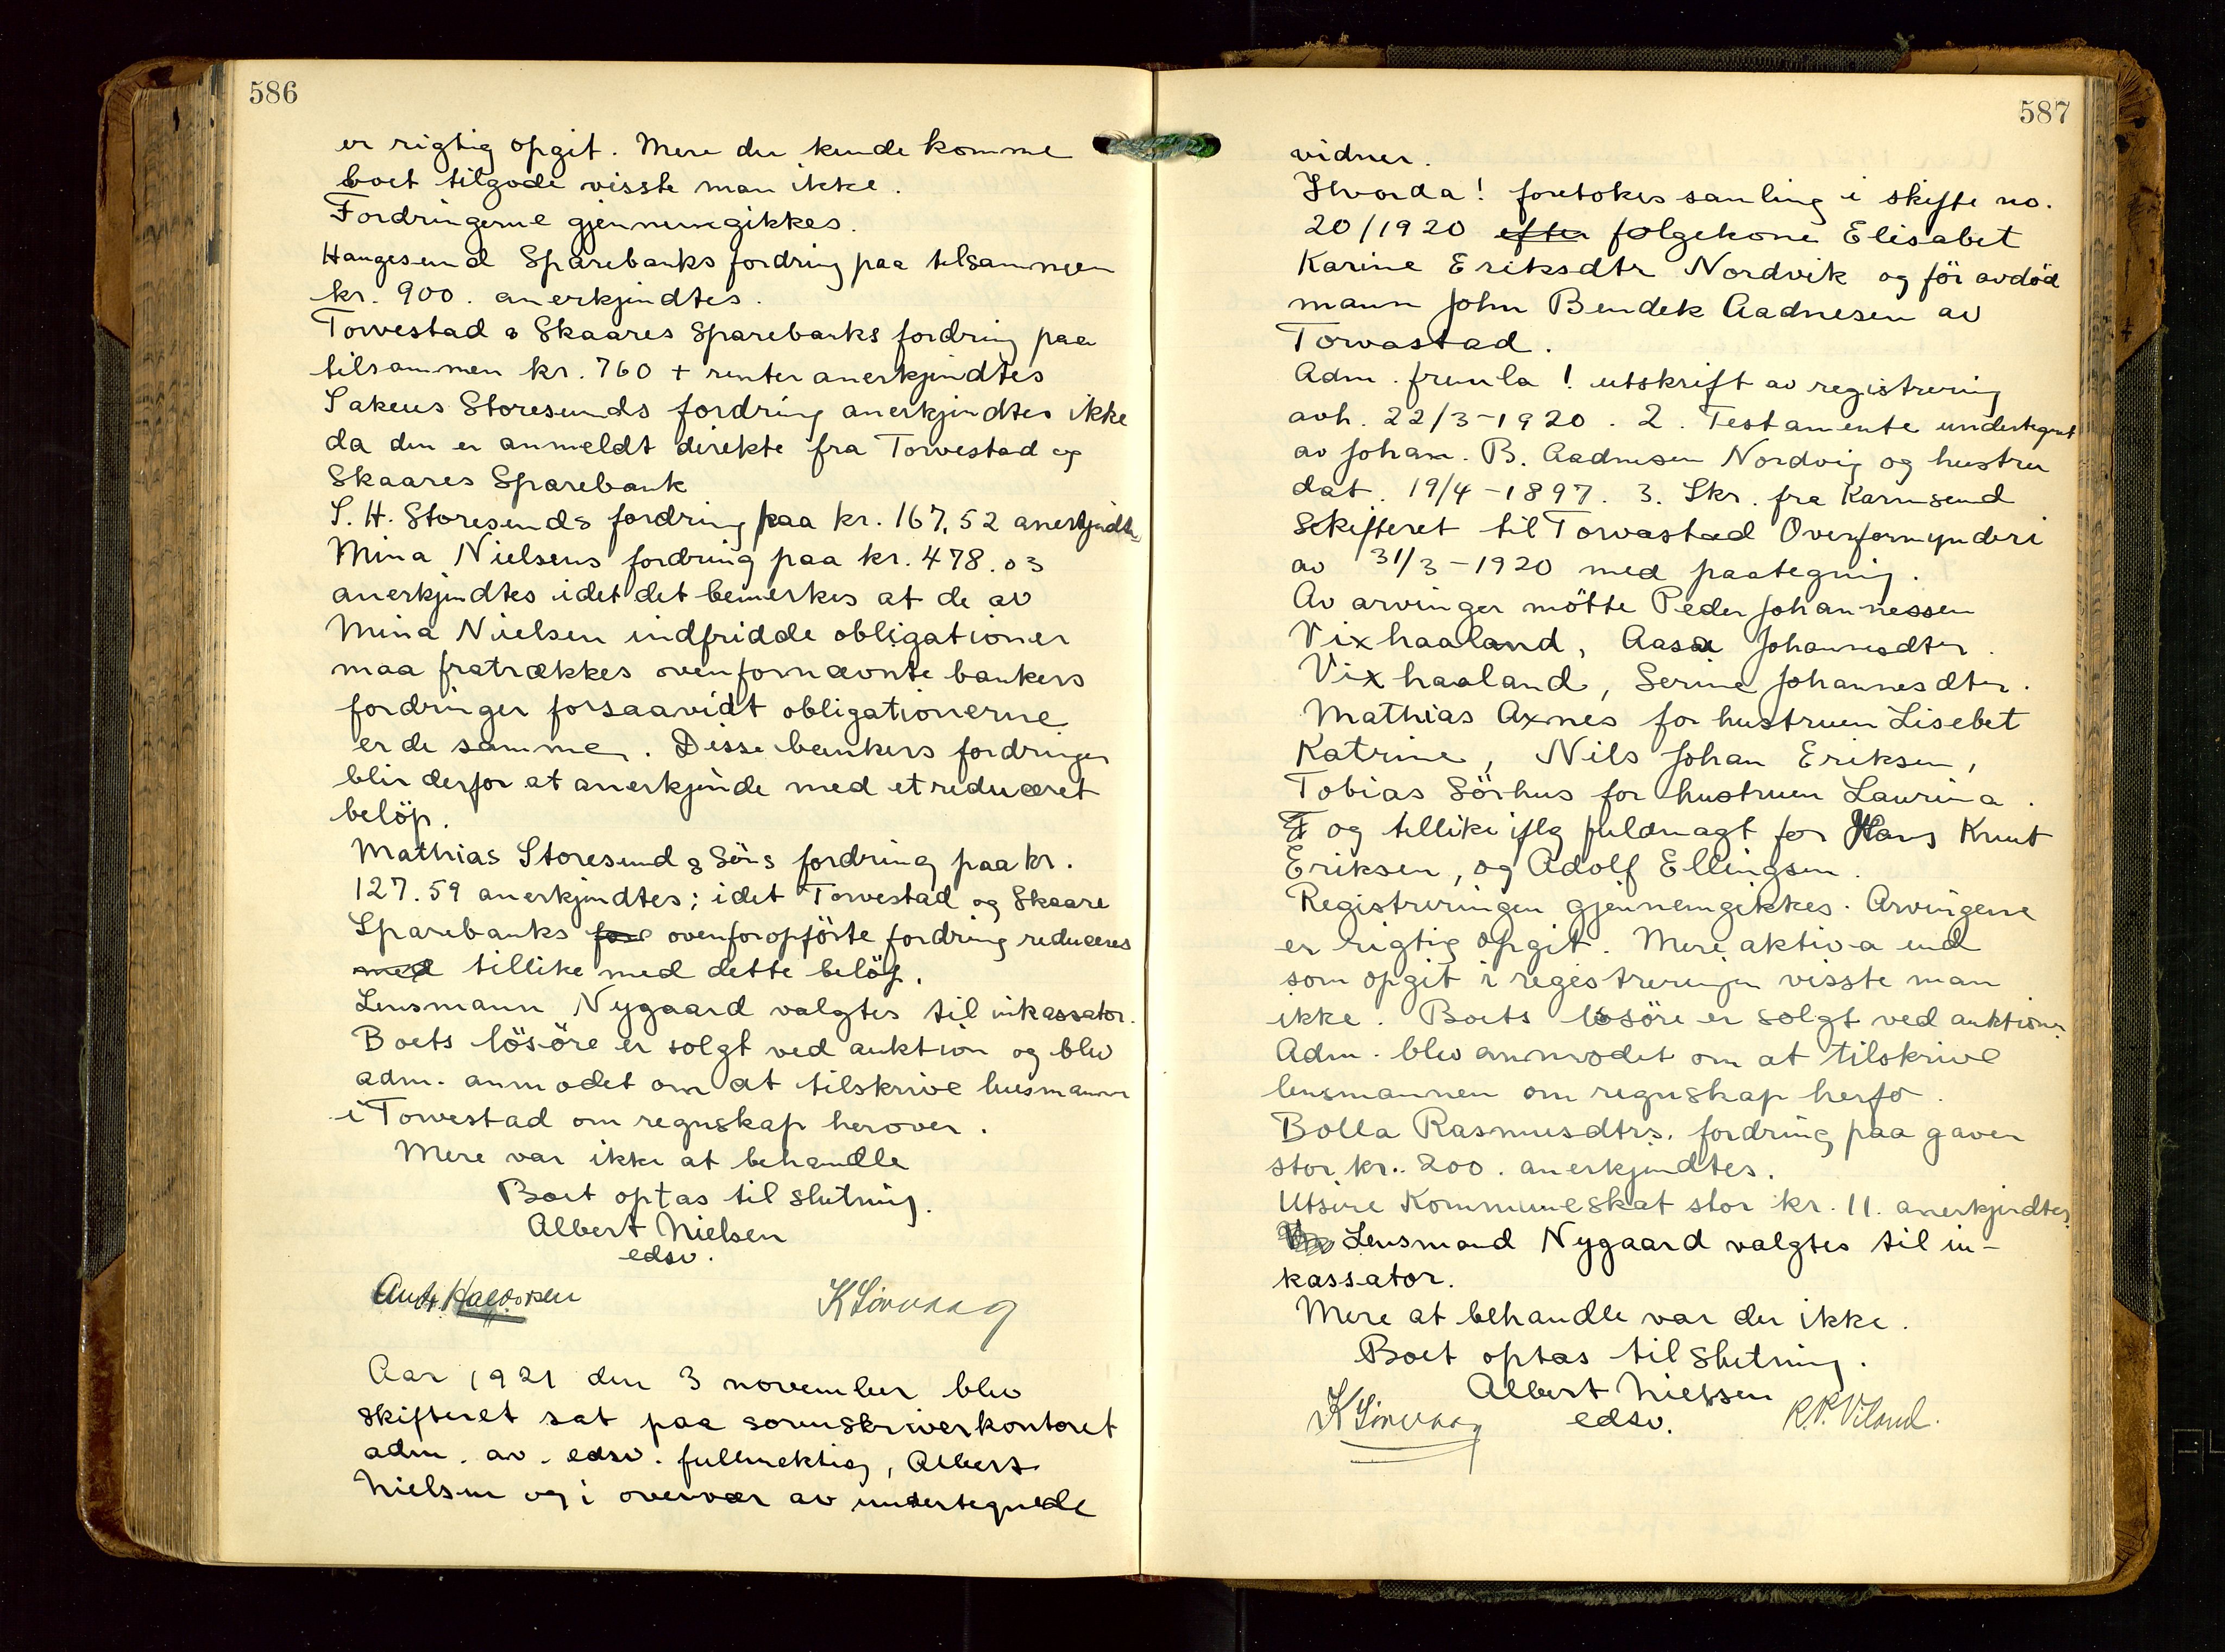 586
er rigtig opgit. Mere der kunde komme
boet tilgode visste man ikke.
Fordringerne gjennemgikkes.
Haugesund Sparebanks fordring paa tilsammen
kr. 900. anerkjendtes.
Torvestad & Skaares Sparebanks fordring paa
tilsammen kr. 760 + renter anerkjendtes
Sakeus Storesunds fordring anerkjendtes ikke
da den er anmeldt direkte fra Torvestad og
Skaares Sparebank
S. H. Storesunds fordring paa kr. 167,52 anerkjendtes
Mina Nielsens fordring paa kr. 478.03
anerkjendtes idet det bemerkes at de av
Mina Nielsen indfridde obligationer
maa fratrækkes ovenfornævnte bankers
fordringer forsaavidt obligationerne
er de samme. Disse bankers fordringer
blir derfor at anerkjende med et reduceret
belöp.
Mathias Storesund & Söns fordring paa kr.
127.59 anerkjendtes; idet Torvestad og Skaare
Sparebanks ovenforopförte fordring reduceres
med tillike med dette belöp.
Lensmann Nygaard valgtes til inkassator.
Boets lösöre er solgt ved auktion og blev
adm. anmodet om at tilskrive lensmannen
i Torvestad om regnskap herover.
Mere var ikke at behandle
Boet optas til slutning.
Albert Nielsen
edsv.
Ant. Halvorsen K Sörvaag
Aar 1921 den 3 november blev
skifteret sat paa sorenskriverkontoret
adm. av. edsv. fullmektig, Albert
Nielsen og i overvær av undertegnede
587
vidner.
Hvorda! foretokes samling i skifte no.
20/1920 efter fölgekone Elisabet
Karine Eriksdtr Nordvik og för avdöd
mann John Bendek Aadnesen av
Torvastad.
Adm. fremla 1. utskrift av registrering
avh. 22/3-1920. 2. Testamente undertegnet
av Johan. B. Aadnesen Nordvig og hustru
dat. 19/4-1897. 3. Skr. fra Karmsund
Skifteret til Torvastad Overformynderi
av 31/3-1920 med paategning.
Av arvinger mötte Peder Johannessen
Vixhaaland, Aasa Johannesdter.
Vixhaaland, Serine Johannesdter.
Mathias Axnes for hustruen Lisebet
Katrine, Nils Johan Eriksen,
Tobias Sörhus for hustruen Laurina.
og tillike iflg fuldmagt for Hans Knut
Eriksen, og Adolf Ellingsen.
Registreringen gjennemgikkes. Arvingerne
er rigtig opgit. Mere aktiva end
som opgit i registreringen visste man
ikke. Boets lösöre er solgt ved auktioner
Adm. blev anmodet om at tilskrive
lensmannen om regnskap herfo.
Bolla Rasmusdtrs. fordring paa gaver
stor kr. 200. anerkjendtes.
Utsire Kommuneskat stor kr. 11. anerkjendtes
Lensmand Nygaard valgtes til in-
kassator.
Mere at behandle var der ikke.
Boet optas til slutning.
Albert Nielsen
K Sörvaag edsv. R.P. Viland.